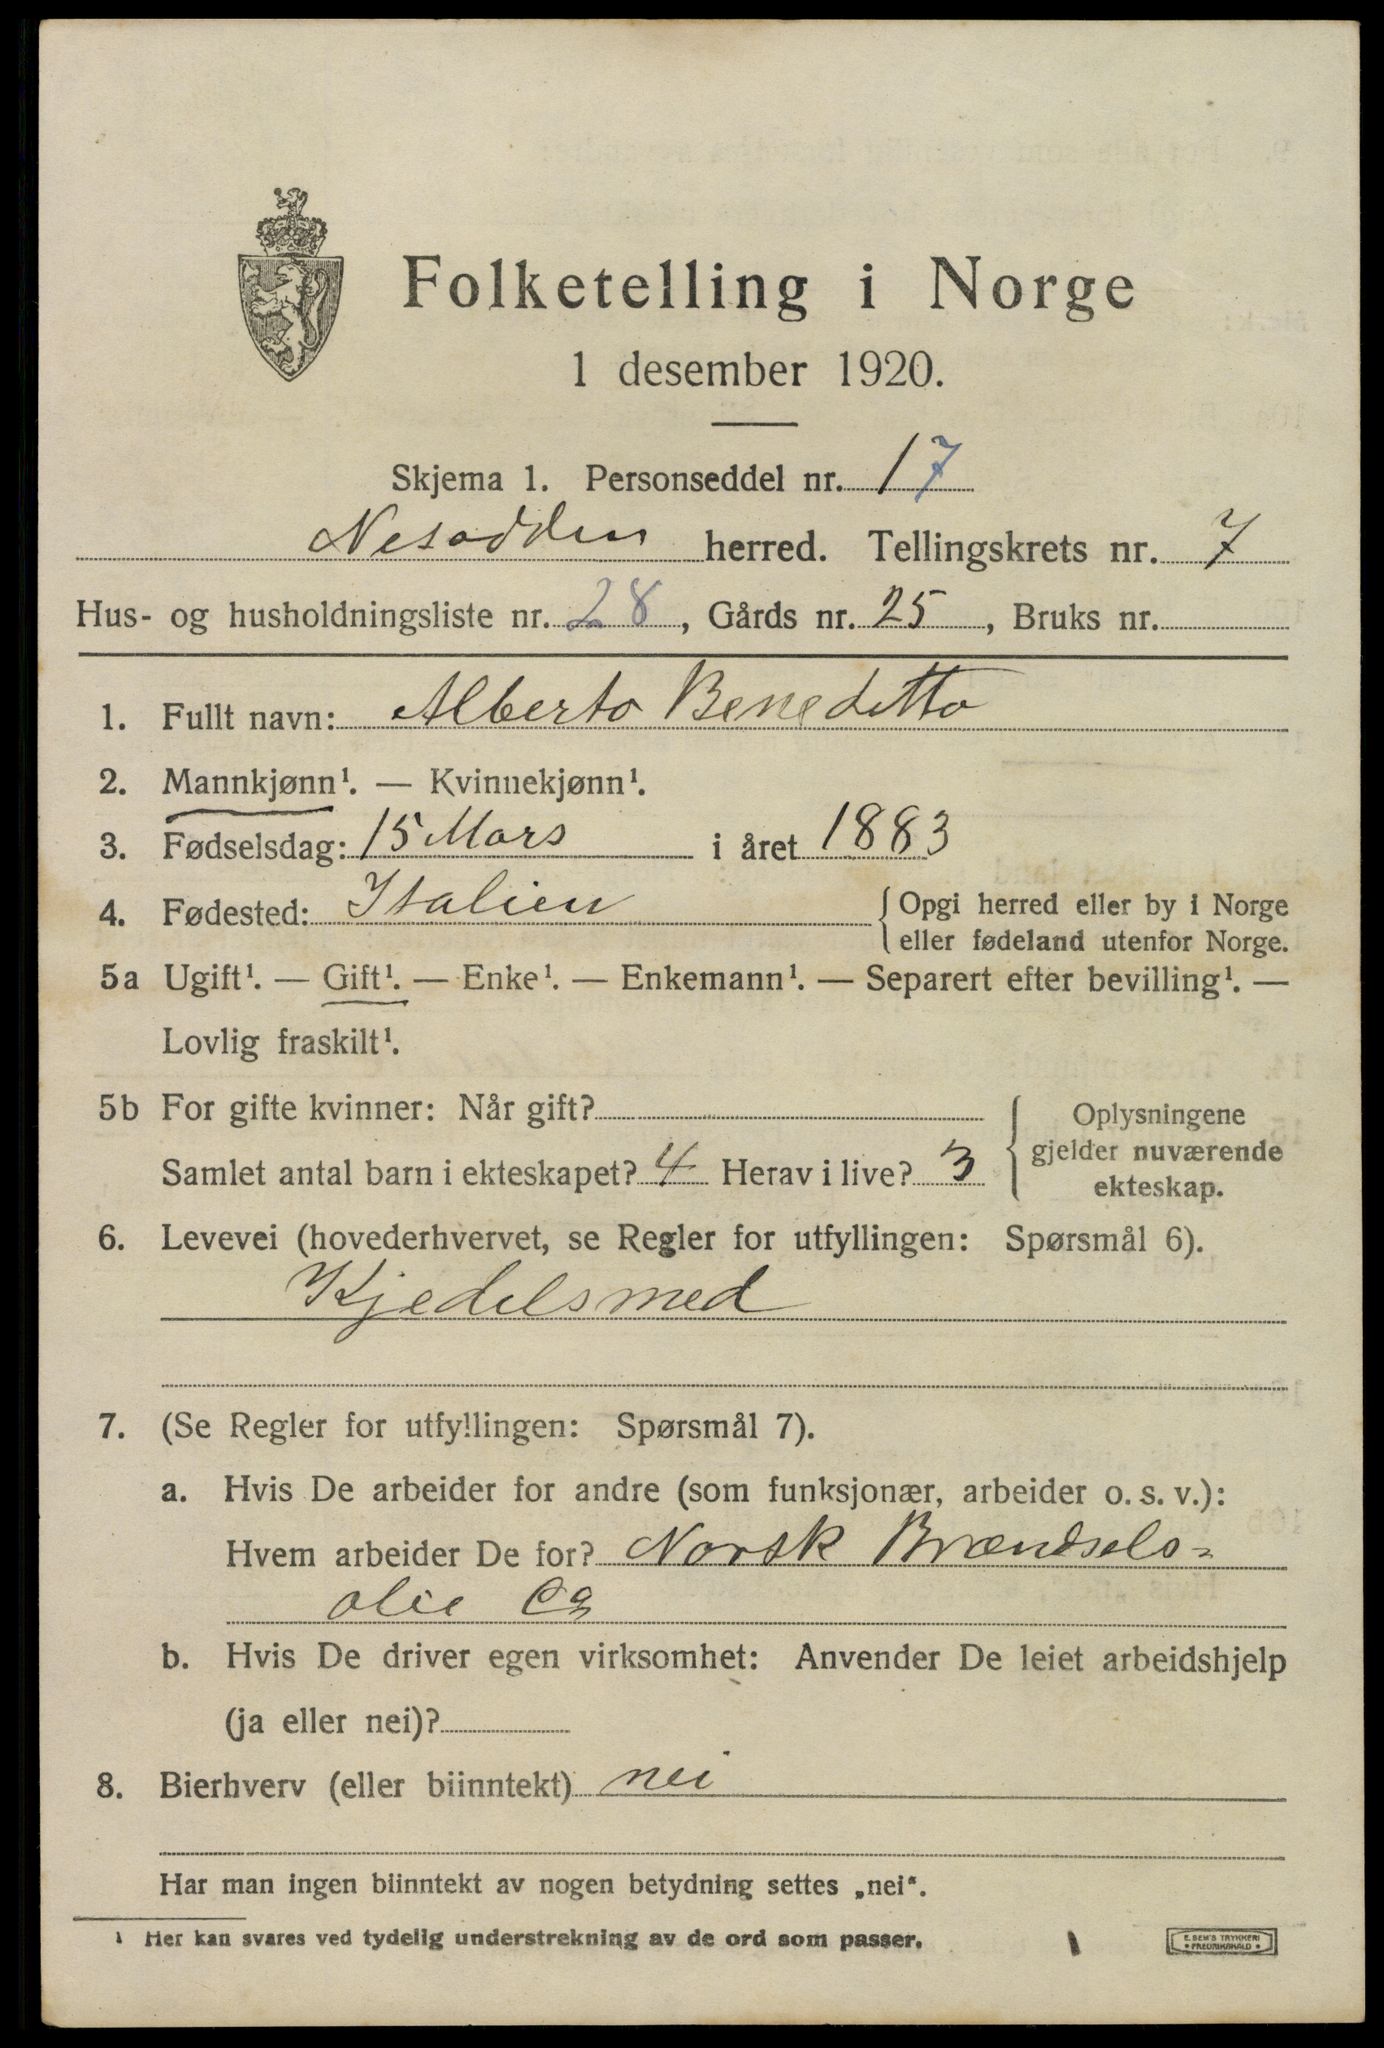 Folketelling i Norge
1 desember 1920.
Skjema 1. Personseddel nr. 17
Nesodden herred. Tellingskrets nr. 7
Hus- og husholdningsliste nr. 28, Gårds nr. 25, Bruks nr.
1. Fullt navn: Alberto Benedetto
2. Mannkjønn¹. — Kvinnekjønn¹.
3. Fødselsdag: 15 Mars i året 1883
4. Fødested: Italien
{ Opgi herred eller by i Norge
eller fødeland utenfor Norge.
5a Ugift¹. — Gift¹. — Enke¹. — Enkemann¹. — Separert efter bevilling¹. —
Lovlig fraskilt¹.
5b For gifte kvinner: Når gift?
Samlet antal barn i ekteskapet? 4 Herav i live? 3
{ Oplysningene
gjelder nuværende
ekteskap.
6. Levevei (hovederhvervet, se Regler for utfyllingen: Spørsmål 6).
Kjedelsmed
7. (Se Regler for utfyllingen: Spørsmål 7).
a. Hvis De arbeider for andre (som funksjonær, arbeider o. s. v.):
Hvem arbeider De for? Norsk Brændsels=
olie Co
b. Hvis De driver egen virksomhet: Anvender De leiet arbeidshjelp
(ja eller nei)?
8. Bierhverv (eller biinntekt) nei
Har man ingen biinntekt av nogen betydning settes „nei“.
¹ Her kan svares ved tydelig understrekning av de ord som passer.
E. SEM'S TRYKKERI
• FREDRIKSHALD •